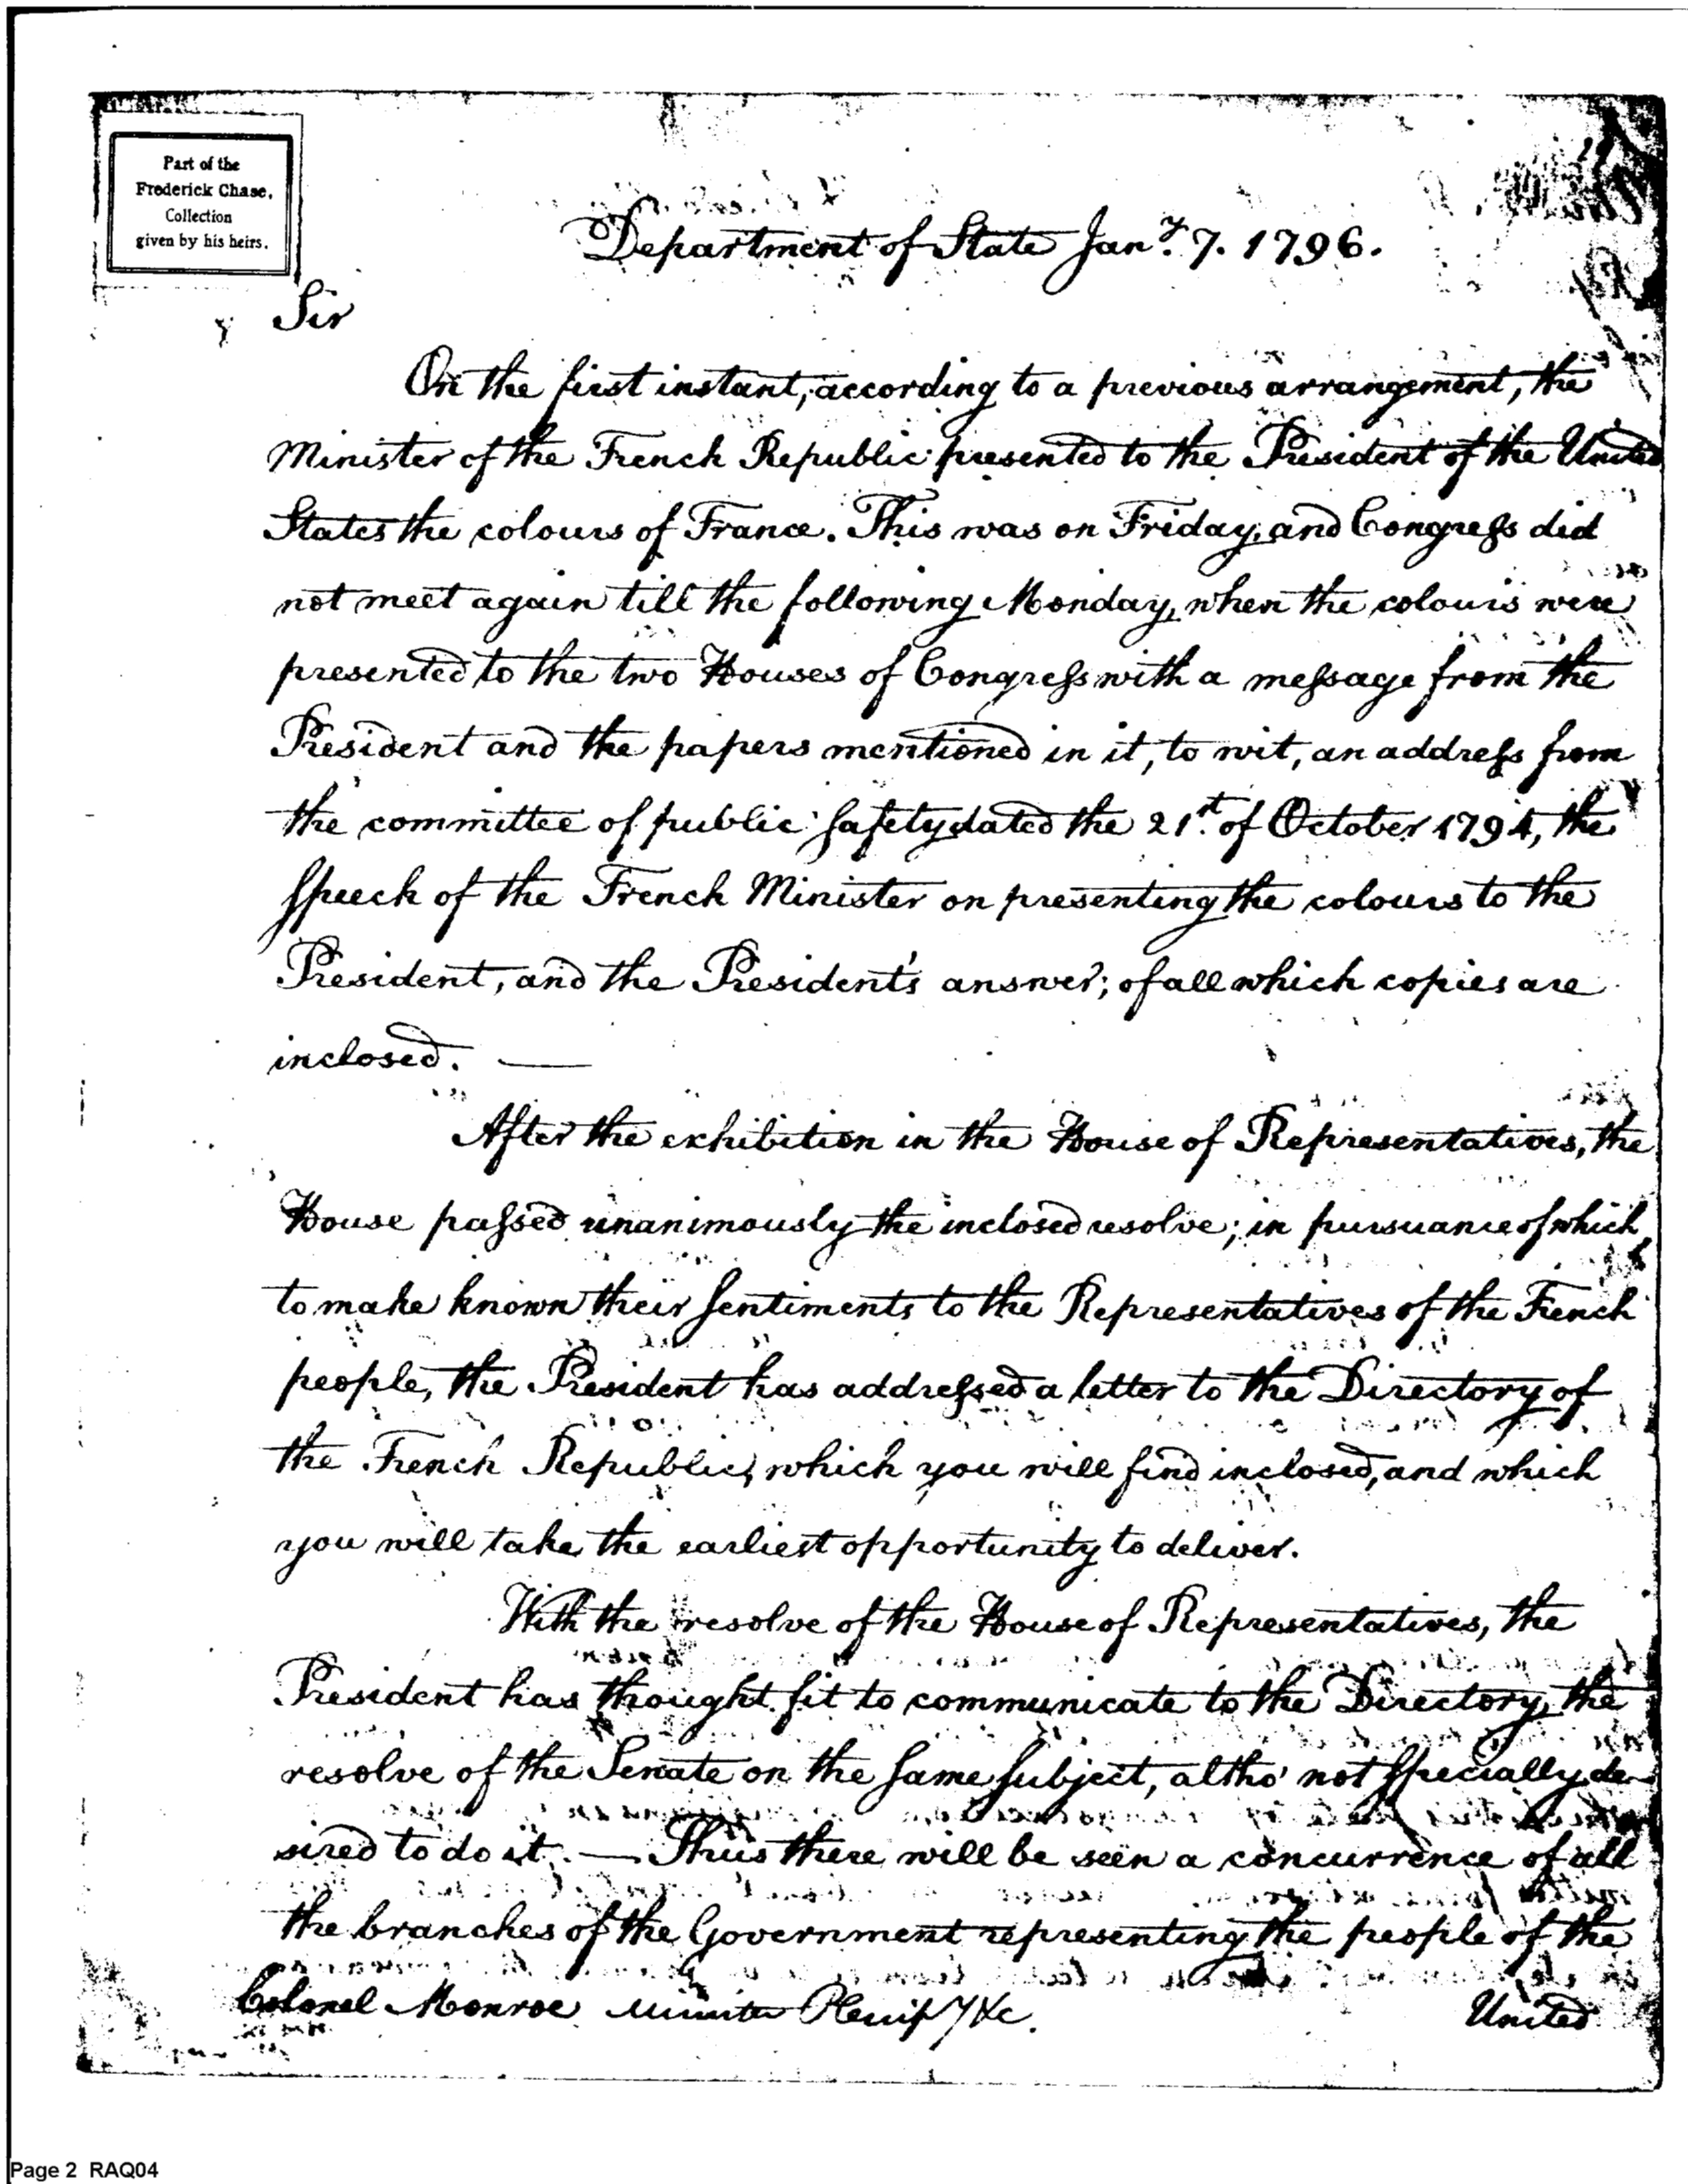 Part of the
Frederick Chase.
Collection
given by his heirs.
Department of State Jany. 7. 1796.
Sir
On the first instant, according to a previous arrangement, the
Minister of the French Republic presented to the President of the United
States the colours of France. This was on Friday, and Congress did
not meet again till the following Monday, when the colours were
presented to the two Houses of Congress with a message from the
President and the papers mentioned in it, to wit, an address from
the committee of public safety dated the 21st. of October 1794, the
speech of the French Minister on presenting the colours to the
President, and the President's answer; of all which copies are
inclosed. —
After the exhibition in the House of Representatives, the
House passed unanimously the inclosed resolve; in pursuance of which,
to make known their sentiments to the Representatives of the French
people, the President has addressed a letter to the Directory of
the French Republic, which you will find inclosed, and which
you will take the earliest opportunity to deliver.
With the resolve of the House of Representatives, the
President has thought fit to communicate to the Directory, the
resolve of the Senate on the same subject, altho' not specially de-
sired to do it. — Thus there will be seen a concurrence of all
the branches of the Government representing the people of the
Colonel Monroe Minister Plenipy &c.
United
Page 2 RAQ04